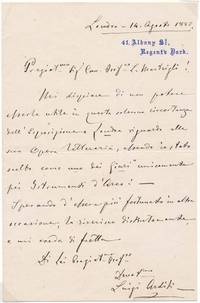 Londra - 14. Agosto 1885.
41. Albany St.,
Regent's Park.
Pregiat.mo Sig. Cav. Prof. L. Mastrigli!
Mi dispiace di non potere
esserle utile in questa solenne circostanza
dell'Esposizione a Londra riguardo alla
sua Opera Letteraria, essendo io stato
scelto come uno dei Giurì unicamente
per Istrumenti d'Arco! —
Sperando d'essere più fortunato in altra
occasione, la riverisco distintamente
e mi creda di fretta
Di Lei Pregiat. Prof.
Devot.mo
Luigi Arditi